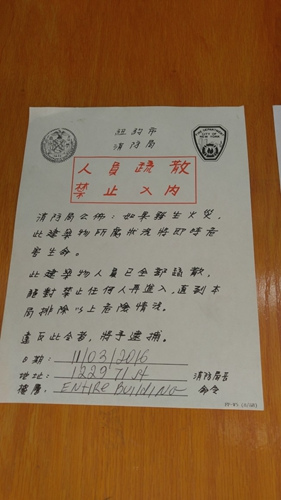 紐約市
消防局
FIRE DEPARTMENT
CITY OF
NEW YORK
人員疏散
禁止入內
消防局公佈：如果發生火災，
此建築物所屬狀況將即時危
害生命。
此建築物人員已全部疏散，
絕對禁止任何人再進入，直到本
局排除以上危險情況。
違反此令者，將予逮捕。
日期： 11/03/2016
地址： 1229 71 st
樓層： ENTIRE BUILDING
消防局長
命令